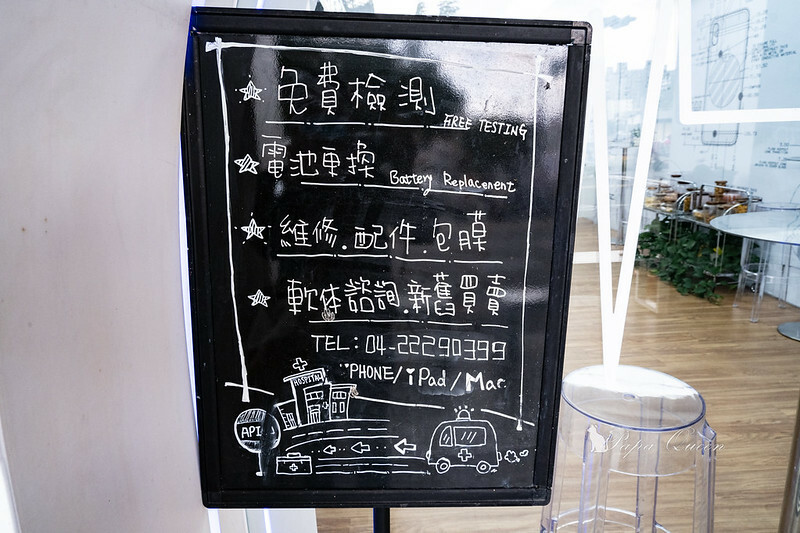 免費檢測
FREE TESTING
電池更換 Battery Replacement
維修.配件.包膜
軟体諮詢.新舊買賣
TEL: 04-22290399
iPHONE/iPad/Mac
HOSPITAL
API
Papa Qwin